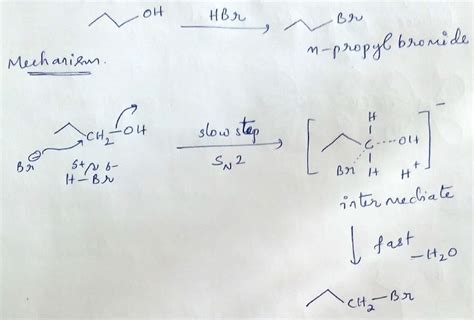 OH HBr Br
n-propyl bromide
Mechanism.
CH2 OH
Br⊖
δ+ δ-
H-Br
slow step
SN2
H
C OH
Br H H+
−
intermediate
fast
-H2O
CH2-Br